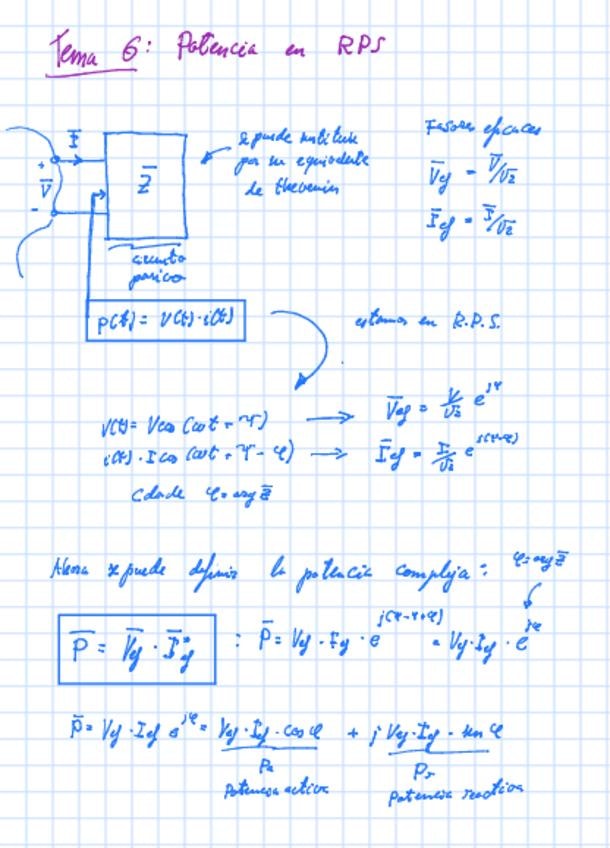 Tema 6: Potencia en RPS
I̅
+
V̅
-
Z̅
se puede sustituir
por su equivalente
de thevenin
circuito
pasivo
Fasores eficaces
V̅ef = V̅/√2
I̅ef = I̅/√2
p(t) = v(t)·i(t)
estamos en R.P.S.
v(t) = V cos (ωt + ψ) → V̅ef = V/√2 e^jψ
i(t) = I cos (ωt + ψ - φ) → I̅ef = I/√2 e^j(ψ-φ)
donde φ = arg Z̅
Ahora se puede definir la potencia compleja: φ = arg Z̅
P̅ = V̅ef · I̅ef* : P̅ = Vef · Ief · e^j(ψ-ψ+φ) = Vef · Ief · e^jφ
P̅ = Vef · Ief e^jφ = Vef · Ief · cos φ + j Vef · Ief · sen φ
Pa
Potencia activa
Pr
Potencia reactiva